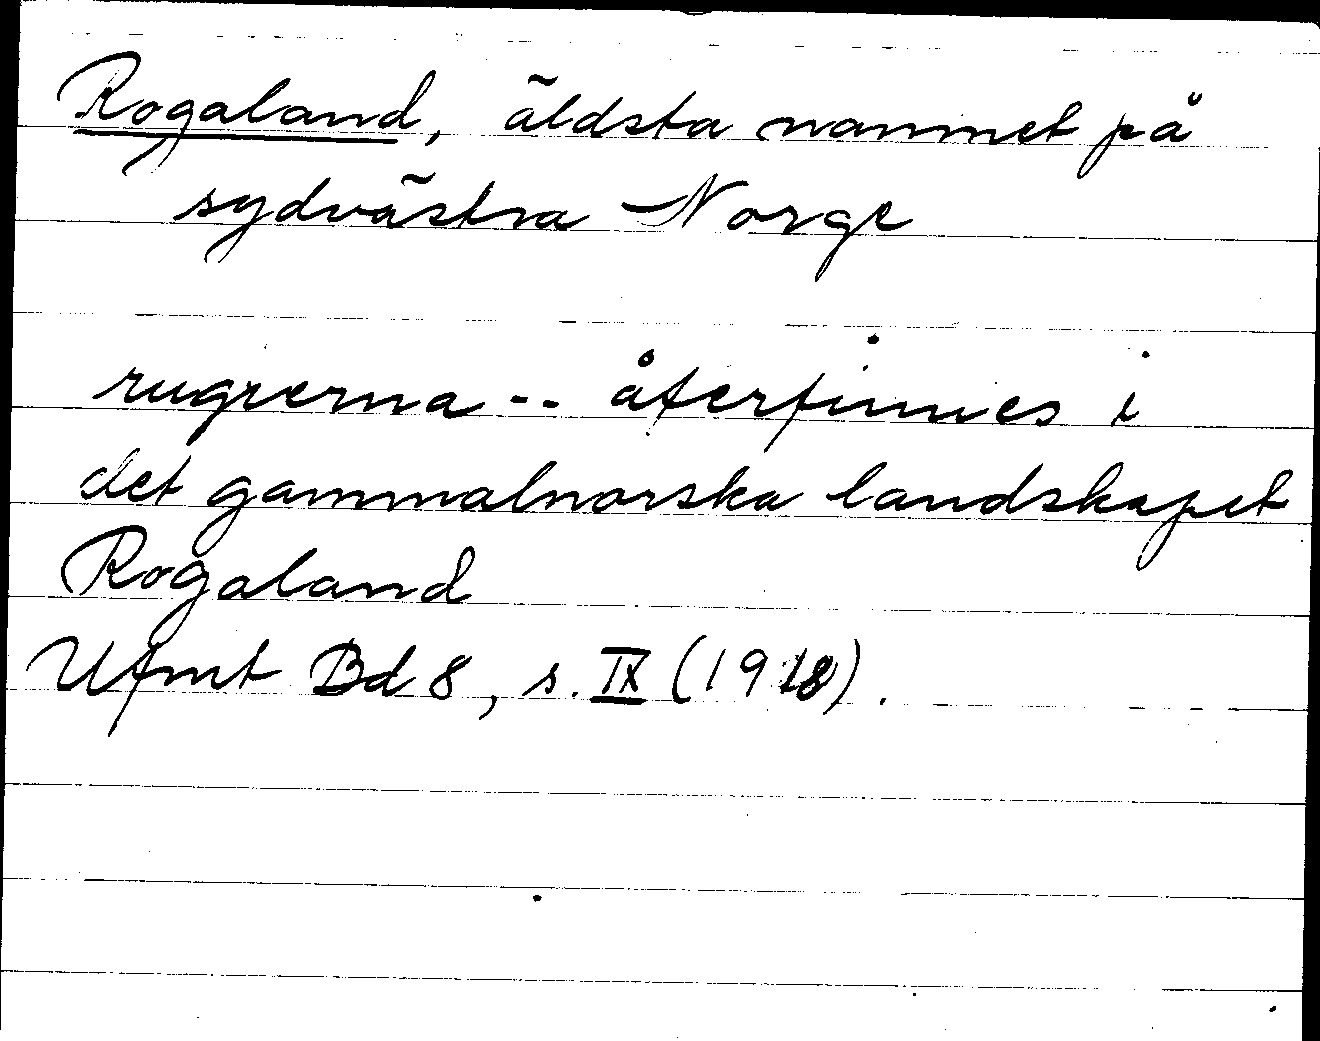 Rogaland, äldsta namnet på
sydvästra Norge
rugierna -- återfinnes i
det gammalnorska landskapet
Rogaland
Ufmt Bd 8, s. IX (1918).